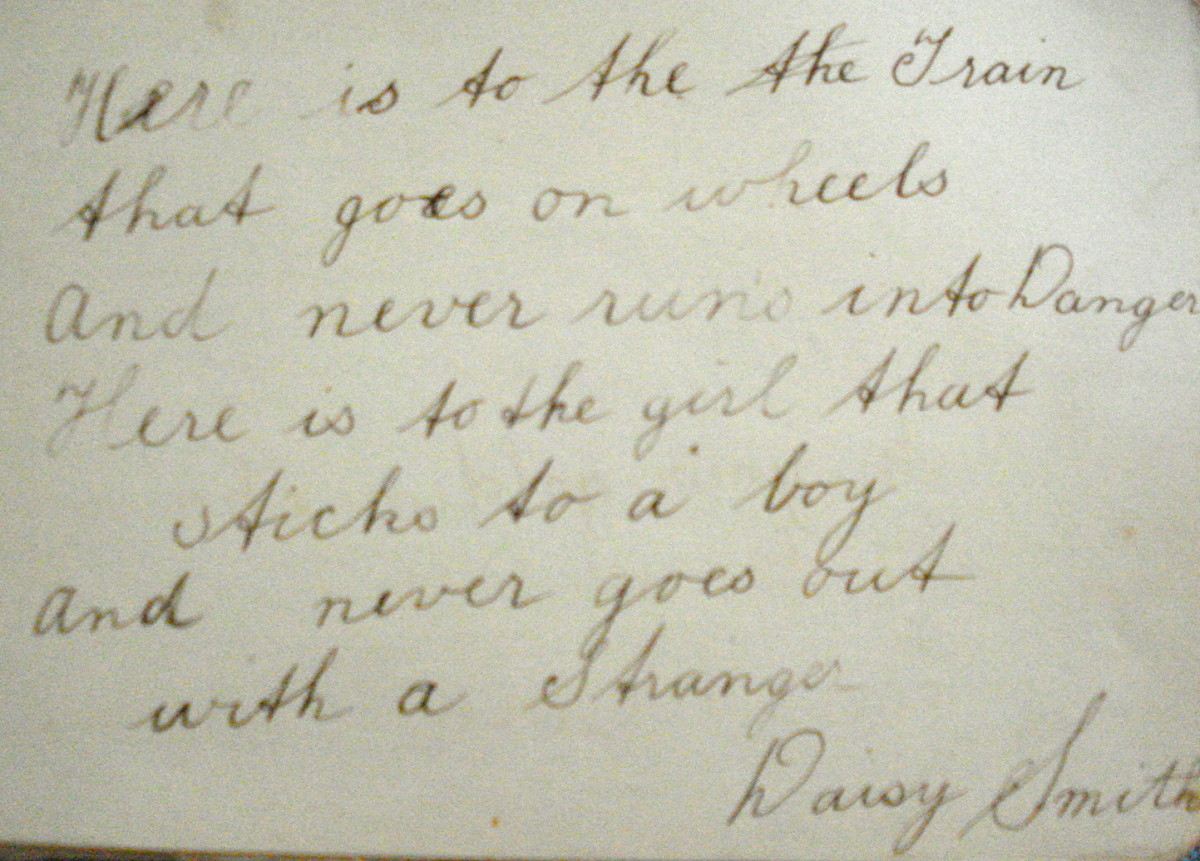 Here is to the the Train
that goes on wheels
And never runs into Danger
Here is to the girl that
sticks to a boy
And never goes out
with a Stranger
Daisy Smith